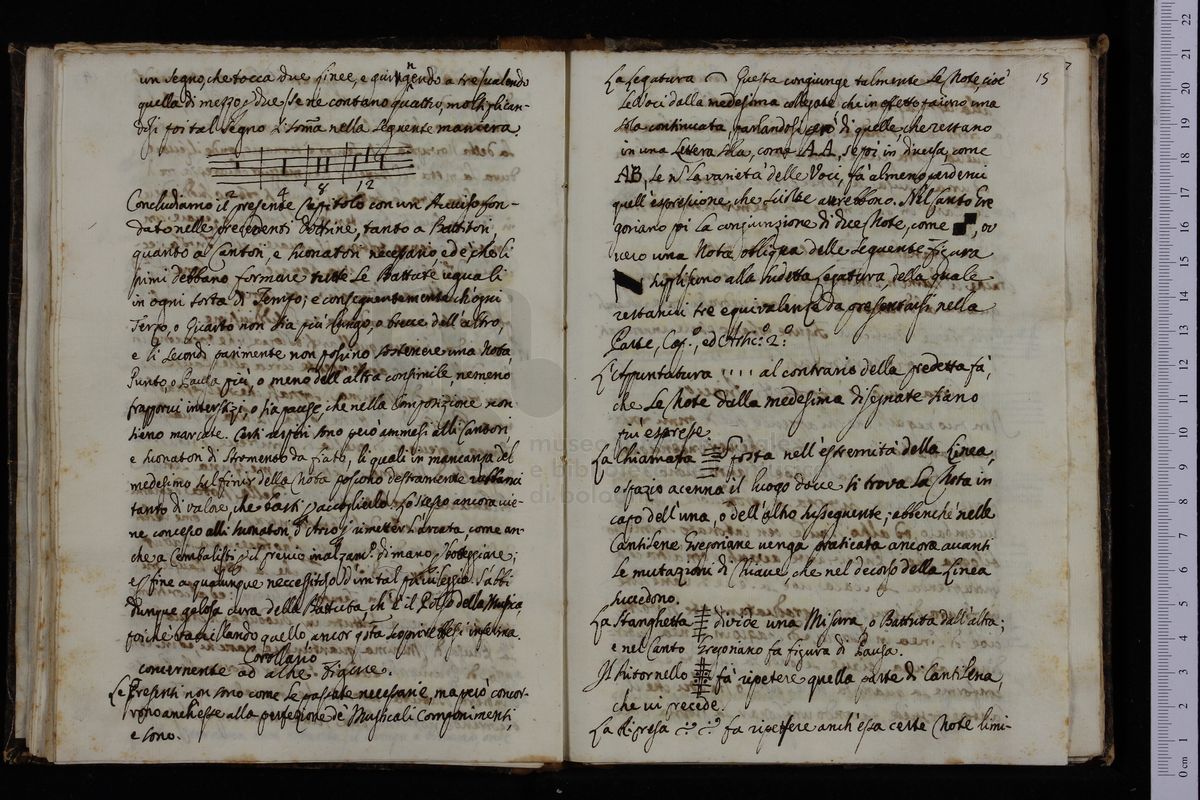 un segno, che tocca due linee, e quingendo a tre sualendo
quella di mezzo, due se ne contano quattro, moltiplican-
dosi poi tal segno l'istessa nella seguente maniera
2 4 8 12
Concludiamo il presente Capitolo con un Avviso fon-
dato nelle precedenti Dottrine, tanto a Battitori,
quanto a Cantori, e Suonatori necessario ed è che li
primi debbano formare tutte Le Battute uguali
in ogni sorta di Tempo; e conseguentemente ch'ogni
Terzo, o Quarto non sia più lungo, o breve dell'altro,
e li Secondi parimente non possino sostenere una Nota,
Punto, o Pausa più, o meno dell'altra consimile, nemeno
frapporvi interstizi, o sia pause, che nella Composizione non
sieno marcate. Certi respiri sono però ammessi alli Cantori,
e Suonatori di Stromento da fiato, li quali in mancanza del
medesimo sul finir della Nota possono destramente
tanto di valore, che basti accoglierlo. Lo stesso ancora vie-
ne concesso alli Suonatori d'Arco rimetter L'arcata, come an-
che a Cembalisti previo inalzam.o di mano
e fine a qualunque d'un tal privilegio. S'abbi
dunque gelosa cura della Battuta, ch'è il Polso della Musica,
poichè vacillando quello ancor q.sta scoprirebbesi inferma.
Corollario
concernente ad altre Figure.
Le Presenti non sono come le passate necessarie, ma però concor-
rono anch'esse alla perfezione de' Musicali Componimenti,
e sono.
15
La Legatura Questa congiunge talmente Le Note, cioè
Le Voci dalla medesima collegate che in effetto fanno una
sola continuata, parlandosi però di quelle che restano
in una Lettera sola, come A.A, se poi in diversa, come
AB, Le n.e La varietà delle Voci, fà almeno perdervi
quell'espressione, che sciolte avrebbono. Nel Canto Gre
goriano poi La congiunzione di due Note, come , ov
vero una Nota obliqua della seguente figura
supliscono alla sudetta Legatura della quale
restarvi tre equivalenze da presentarsi nella
Parte, Cap.o, ed Artic.o 2.o:
L'Appuntatura . . . . al contrario della predetta fà,
che Le Note dalla medesima disegnate siano
più espresse.
La Chiamata posta nell'estremità della Linea,
o spazio acenna il luogo dove si trova La Nota in
capo dell'una, o dell'altro susseguente; abbenchè nelle
Cantilene Gregoriane venga praticata ancora avanti
Le mutazioni di Chiave, che nel decorso della Linea
succedono.
La Stanghetta divide una Misura, o Battuta dall'altra;
e nel Canto Gregoriano fà figura di Pausa.
Il Ritornello fà ripetere quella parte di Cantilena,
che vi precede.
La Ripresa fà ripettere anch'essa certe Note limi-